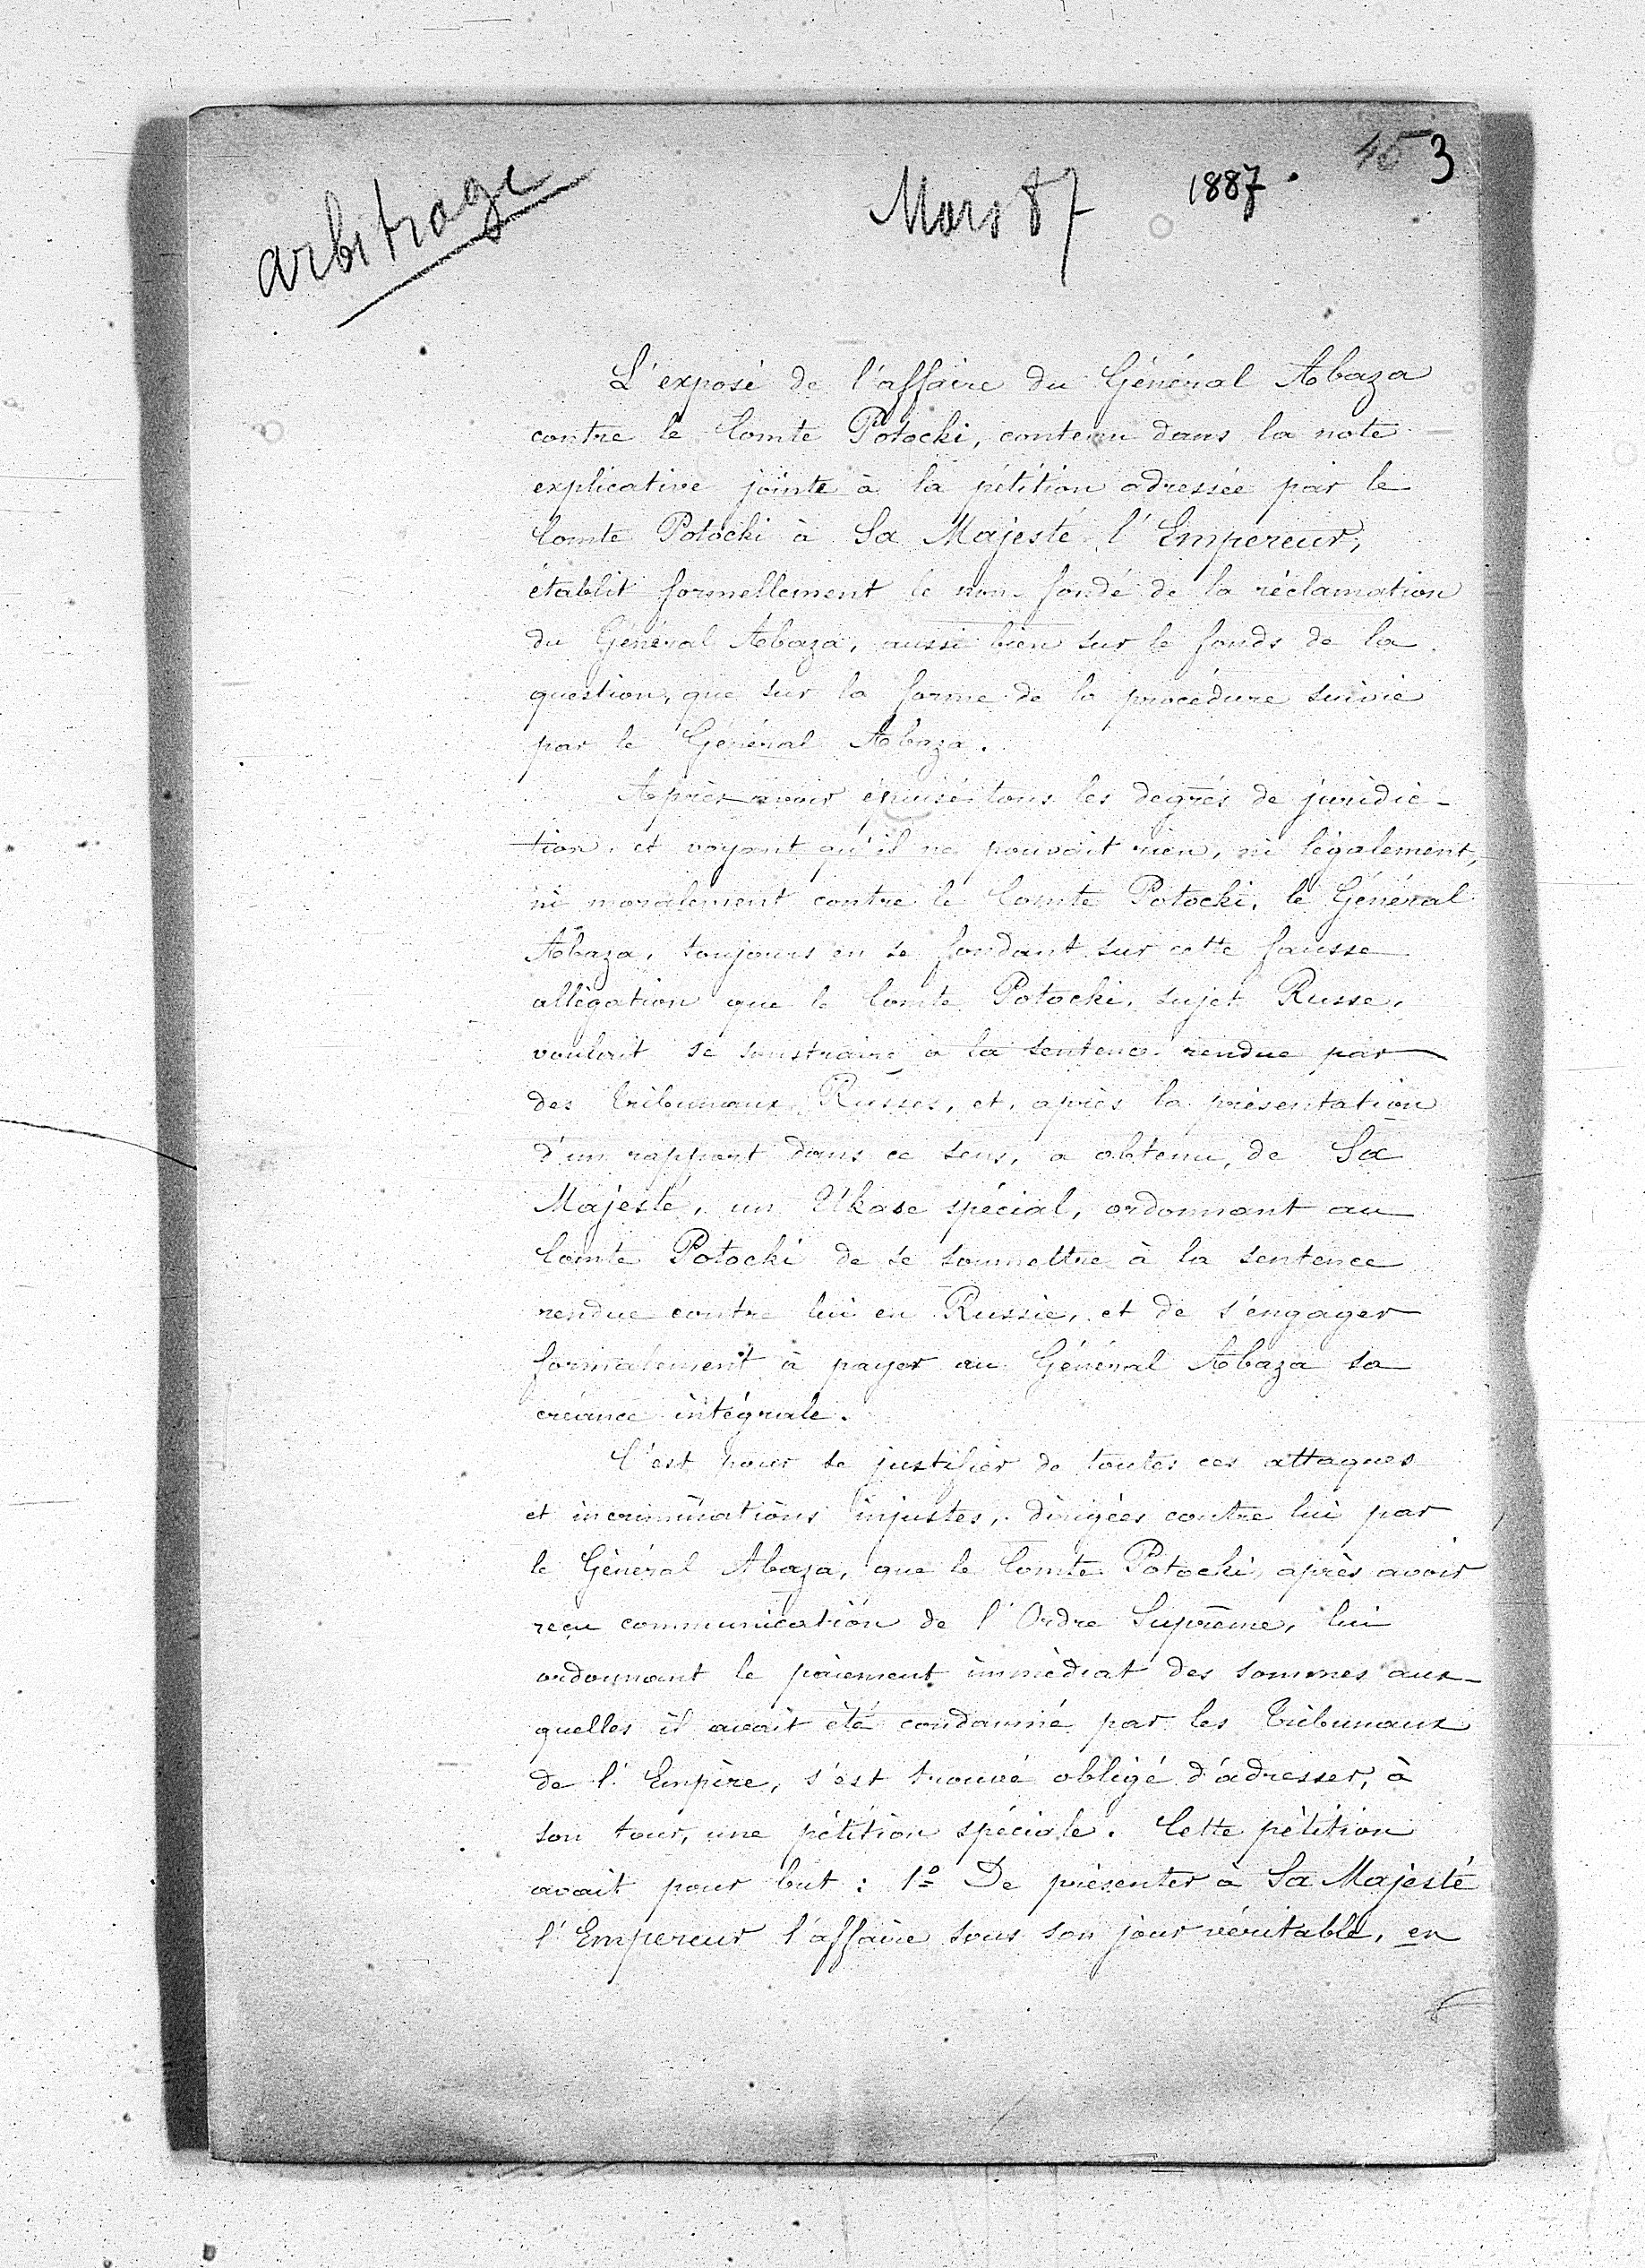 arbitrage
Mars 87
1887.
45 3
L'exposé de l'affaire du Général Abaza
contre le Comte Potocki, contenu dans la note
explicative jointe à la pétition adressée par le
Comte Potocki à Sa Majesté l'Empereur,
établit formellement le non-fondé de la réclamation
du Général Abaza, aussi bien sur le fonds de la
question, que sur la forme de la procédure suivie
par le Général Abaza.
Après avoir épuisé tous les degrés de juridic-
tion, et voyant qu'il ne pouvait rien, ni légalement,
ni moralement contre le Comte Potocki, le Général
Abaza, toujours en se fondant sur cette fausse
allégation que le Comte Potocki, sujet Russe,
voulait se soustraire à la sentence rendue par
des tribunaux Russes, et, après la présentation
d'un rapport dans ce sens, a obtenu, de Sa
Majesté, un Ukase spécial, ordonnant au
Comte Potocki de se soumettre à la sentence
rendue contre lui en Russie, et de s'engager
formalement à payer au Général Abaza sa
créance intégrale.
C'est pour se justifier de toutes ces attaques
et incriminations injustes, dirigées contre lui par
le Général Abaza, que le Comte Potocki, après avoir
reçu communication de l'Ordre Suprême, lui
ordonnant le paiement immédiat des sommes aux-
quelles il avait été condamné par les Tribunaux
de l'Empire, s'est trouvé obligé d'adresser, à
son tour, une pétition spéciale. Cette pétition
avait pour but : 1º De présenter à Sa Majesté
l'Empereur l'affaire sous son jour véritable, en